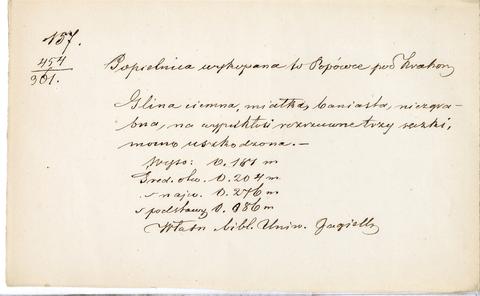 157.
454
301.
Popielnica wykopana w pod Krakow
Glina ciemna, miałka, baniasta, niezgra-
bna, na wypukłości rozrzucone trzy sęczki,
mocno uszkodzona. —
Wyso: 0.181 m
Śred. otw. 0.204 m
" najw. 0.276 m
" podstawy 0.086 m
Własn bibl. Uniw. Jagiell.